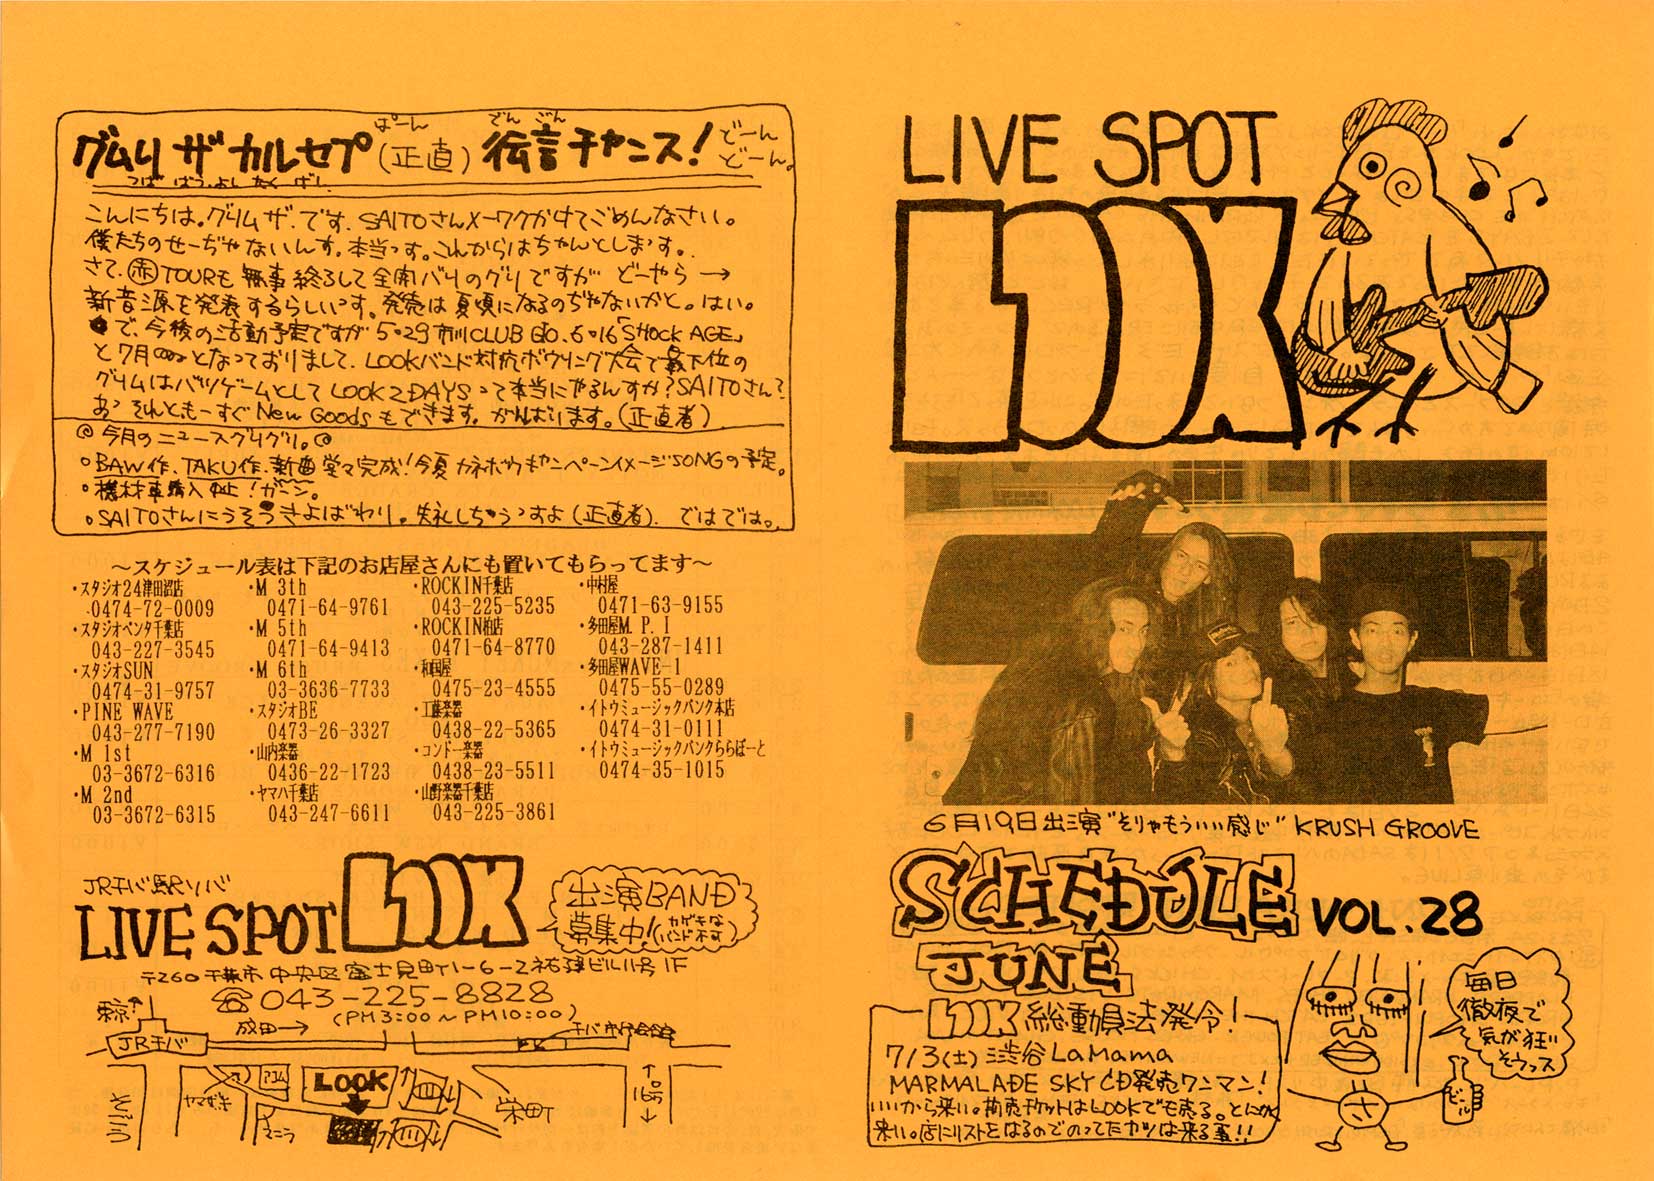 グムリ ザ カルセプ(正直) 伝言チャンス!
ぱーん
でんごん
どーん
どーん。
こんにちは。グリムザ.です. SAITOさんメーワクかけてごめんなさい。
僕たちのせーぢゃないんす. 本当っす. これからはちゃんとします.
さて. 赤TOURも無事終らして全開バリのグリですが どーやら→
新音源を発表するらしいっす. 発売は夏頃になるのぢゃないかと。はい。
で. 今後の活動予定ですが 5.29 市川CLUB GIO. 6.16「SHOCK AGE」
と7月 となっておりまして. LOOKバンド対抗ボウリング大会で最下位の
グリムはバツゲームとして LOOK 2DAYSって本当にやるんすか?SAITOさん?
あっ それともーすぐNew Goodsもできます. がんばります。(正直者)
◎今月のニュースグリグリ。◎
○BAW作. TAKU作. 新曲 堂々完成!今夏カネボウキャンペーンイメージSONGの予定。
○機材車購入中止!ガーン。
○SAITOさんにうそつきよばわり。失礼しちゃうっすよ(正直者). ではでは。
～スケジュール表は下記のお店屋さんにも置いてもらってます～
・スタジオ24津田沼店
0474-72-0009
・スタジオペンタ千葉店
043-227-3545
・スタジオSUN
0474-31-9757
・PINE WAVE
043-277-7190
・M 1st
03-3672-6316
・M 2nd
03-3672-6315
・M 3th
0471-64-9761
・M 5th
0471-64-9413
・M 6th
03-3636-7733
・スタジオBE
0473-26-3327
・山内楽器
0436-22-1723
・ヤマハ千葉店
043-247-6611
・ROCKIN千葉店
043-225-5235
・ROCKIN柏店
0471-64-8770
・和国屋
0475-23-4555
・工藤楽器
0438-22-5365
・コンドー楽器
0438-23-5511
・山野楽器千葉店
043-225-3861
・中村屋
0471-63-9155
・多田屋M.P.I
043-287-1411
・多田屋WAVE-1
0475-55-0289
・イトウミュージックバンク本店
0474-31-0111
・イトウミュージックバンクららぽーと
0474-35-1015
JRチバ駅ソバ
LIVE SPOT LOOK
出演BAND
募集中!(カゲキなバンド不可)
〒260 千葉市中央区富士見町1-6-2 祐建ビル11号 1F
☎043-225-8828
(PM3:00～PM10:00)
東京↑
成田→
JRチバ
チバ市民会館
そごう
ヤマザキ
マニラ
LOOK
栄町
16号
LIVE SPOT
LOOK
6月19日出演"そりゃもういい感じ" KRUSH GROOVE
SCHEDULE VOL.28
JUNE
LOOK 総動員法発令!
7/3(土) 渋谷 La Mama
MARMALADE SKY CD発売ワンマン!
いいから来い。前売チケットはLOOKでも売る。とにかく
来い。店にリストをはるのでのってたヤツは来る事!!
毎日
徹夜で
気が狂い
そうっス
さ
ビール